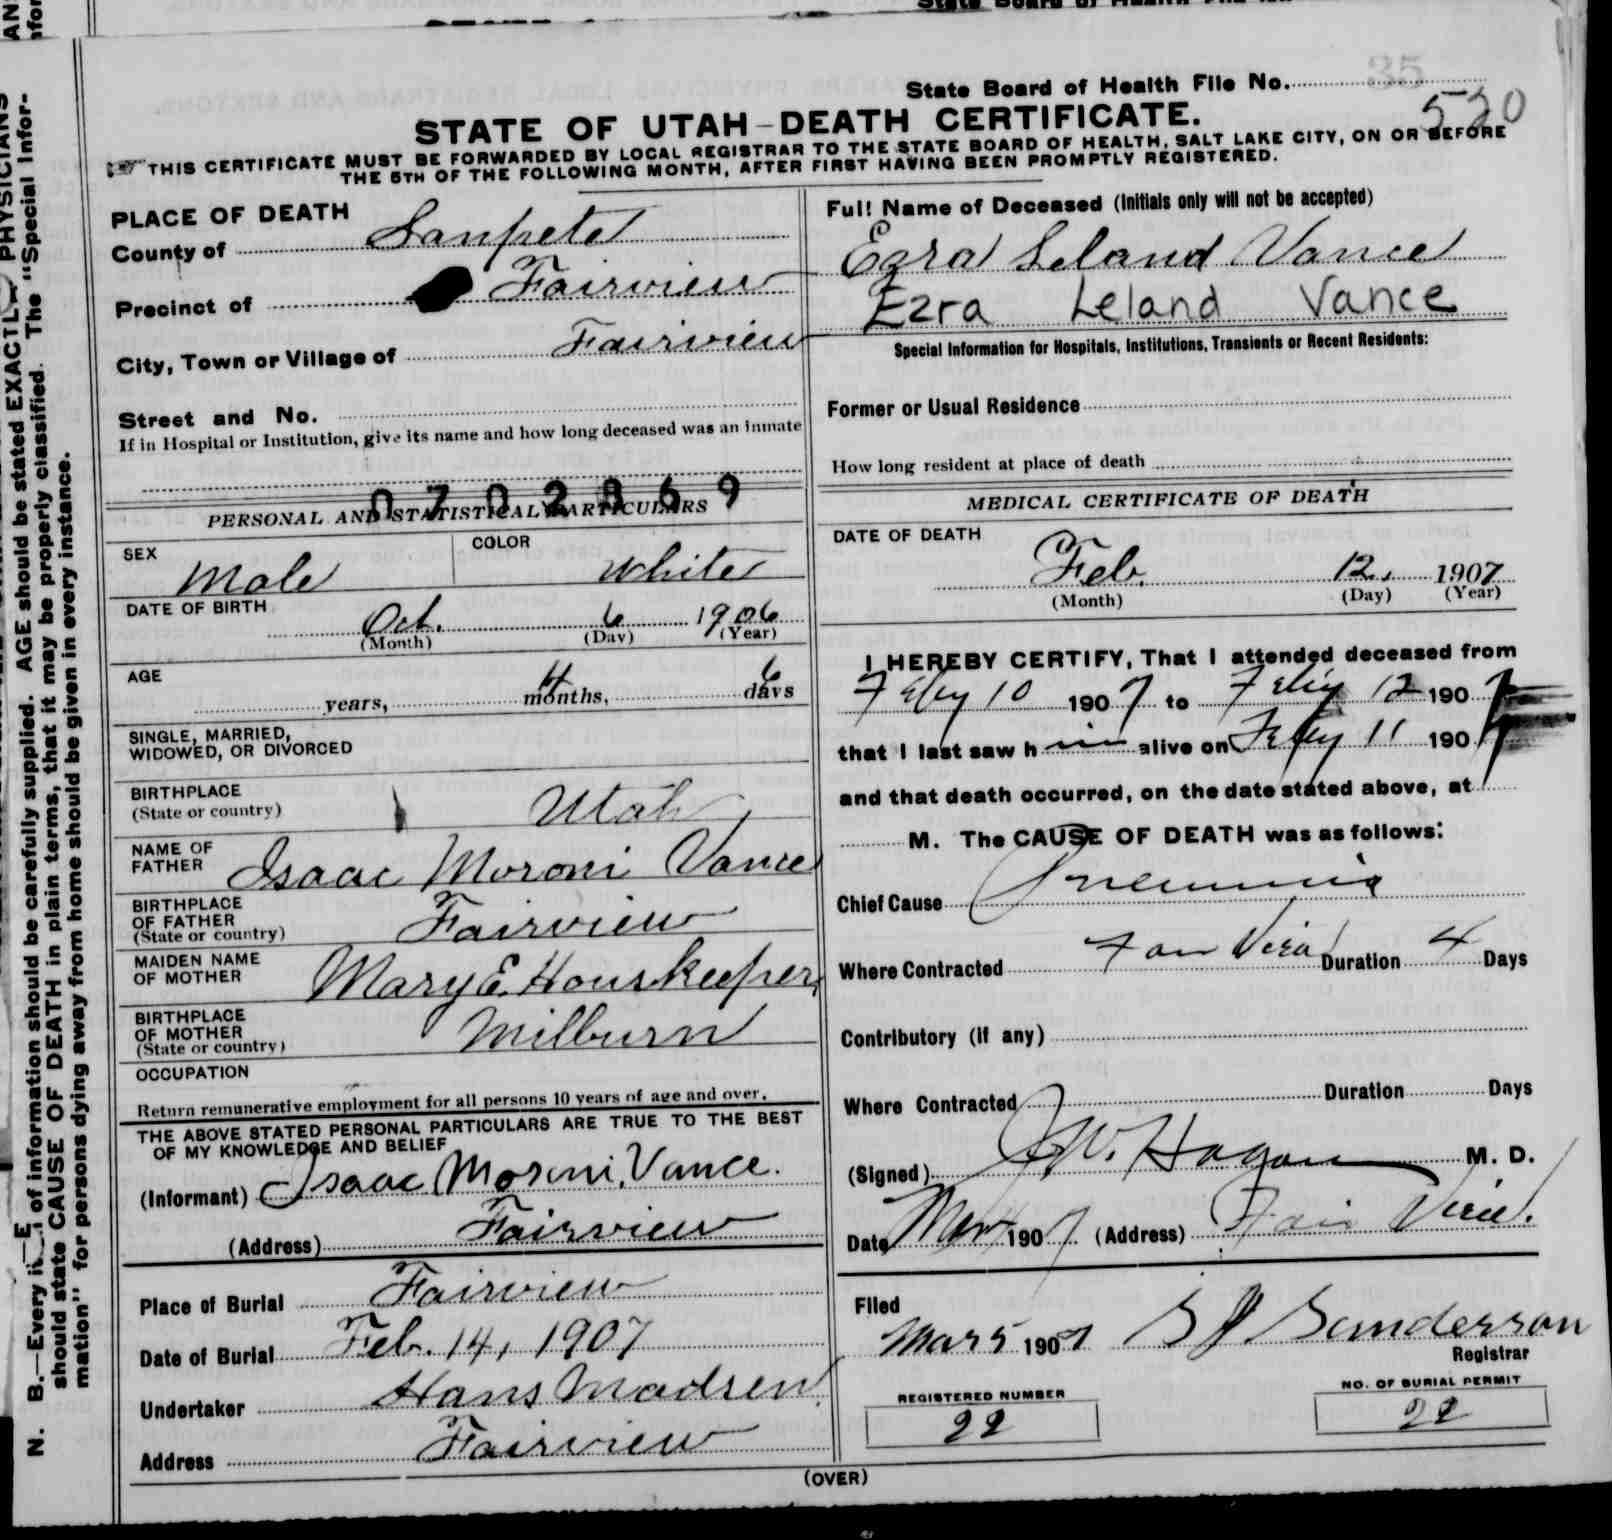 State Board of Health File No. 35
520
STATE OF UTAH-DEATH CERTIFICATE.
THIS CERTIFICATE MUST BE FORWARDED BY LOCAL REGISTRAR TO THE STATE BOARD OF HEALTH, SALT LAKE CITY, ON OR BEFORE
THE 5TH OF THE FOLLOWING MONTH, AFTER FIRST HAVING BEEN PROMPTLY REGISTERED.
PLACE OF DEATH
County of Sanpete
Precinct of Fairview
City, Town or Village of Fairview
Street and No.
If in Hospital or Institution, give its name and how long deceased was an inmate
0702369
PERSONAL AND STATISTICAL PARTICULARS
SEX Male COLOR White
DATE OF BIRTH Oct. 6 1906
(Month) (Day) (Year)
AGE years, 4 months, 6 days
SINGLE, MARRIED,
WIDOWED, OR DIVORCED
BIRTHPLACE
(State or country) Utah
NAME OF
FATHER Isaac Moroni Vance
BIRTHPLACE
OF FATHER
(State or country) Fairview
MAIDEN NAME
OF MOTHER Mary E. Houskeeper
BIRTHPLACE
OF MOTHER
(State or country) Milburn
OCCUPATION
Return remunerative employment for all persons 10 years of age and over.
THE ABOVE STATED PERSONAL PARTICULARS ARE TRUE TO THE BEST
OF MY KNOWLEDGE AND BELIEF
(Informant) Isaac Moroni Vance.
(Address) Fairview
Place of Burial Fairview
Date of Burial Feb. 14, 1907
Undertaker Hans Madsen
Address Fairview
Full Name of Deceased (Initials only will not be accepted)
Ezra Leland Vance
Ezra Leland Vance
Special Information for Hospitals, Institutions, Transients or Recent Residents:
Former or Usual Residence
How long resident at place of death
MEDICAL CERTIFICATE OF DEATH
DATE OF DEATH
Feb. 12, 1907
(Month) (Day) (Year)
I HEREBY CERTIFY, That I attended deceased from
Feby 10 1907 to Feby 12 1907
that I last saw h im alive on Feby 11 1907
and that death occurred, on the date stated above, at
M. The CAUSE OF DEATH was as follows:
Chief Cause Pneumonia
Where Contracted Fair View Duration 4 Days
Contributory (if any)
Where Contracted Duration Days
(Signed) J W. Hagan M. D.
Date Mar 1907 (Address) Fair View.
Filed
Mar 5 1907 S J Sanderson
Registrar
REGISTERED NUMBER
22
NO. OF BURIAL PERMIT
22
(OVER)
N. B.—Every it of information should be carefully supplied. AGE should be stated EXACTLY PHYSICIANS
should state CAUSE OF DEATH in plain terms, that it may be properly classified. The "Special Infor-
mation" for persons dying away from home should be given in every instance.